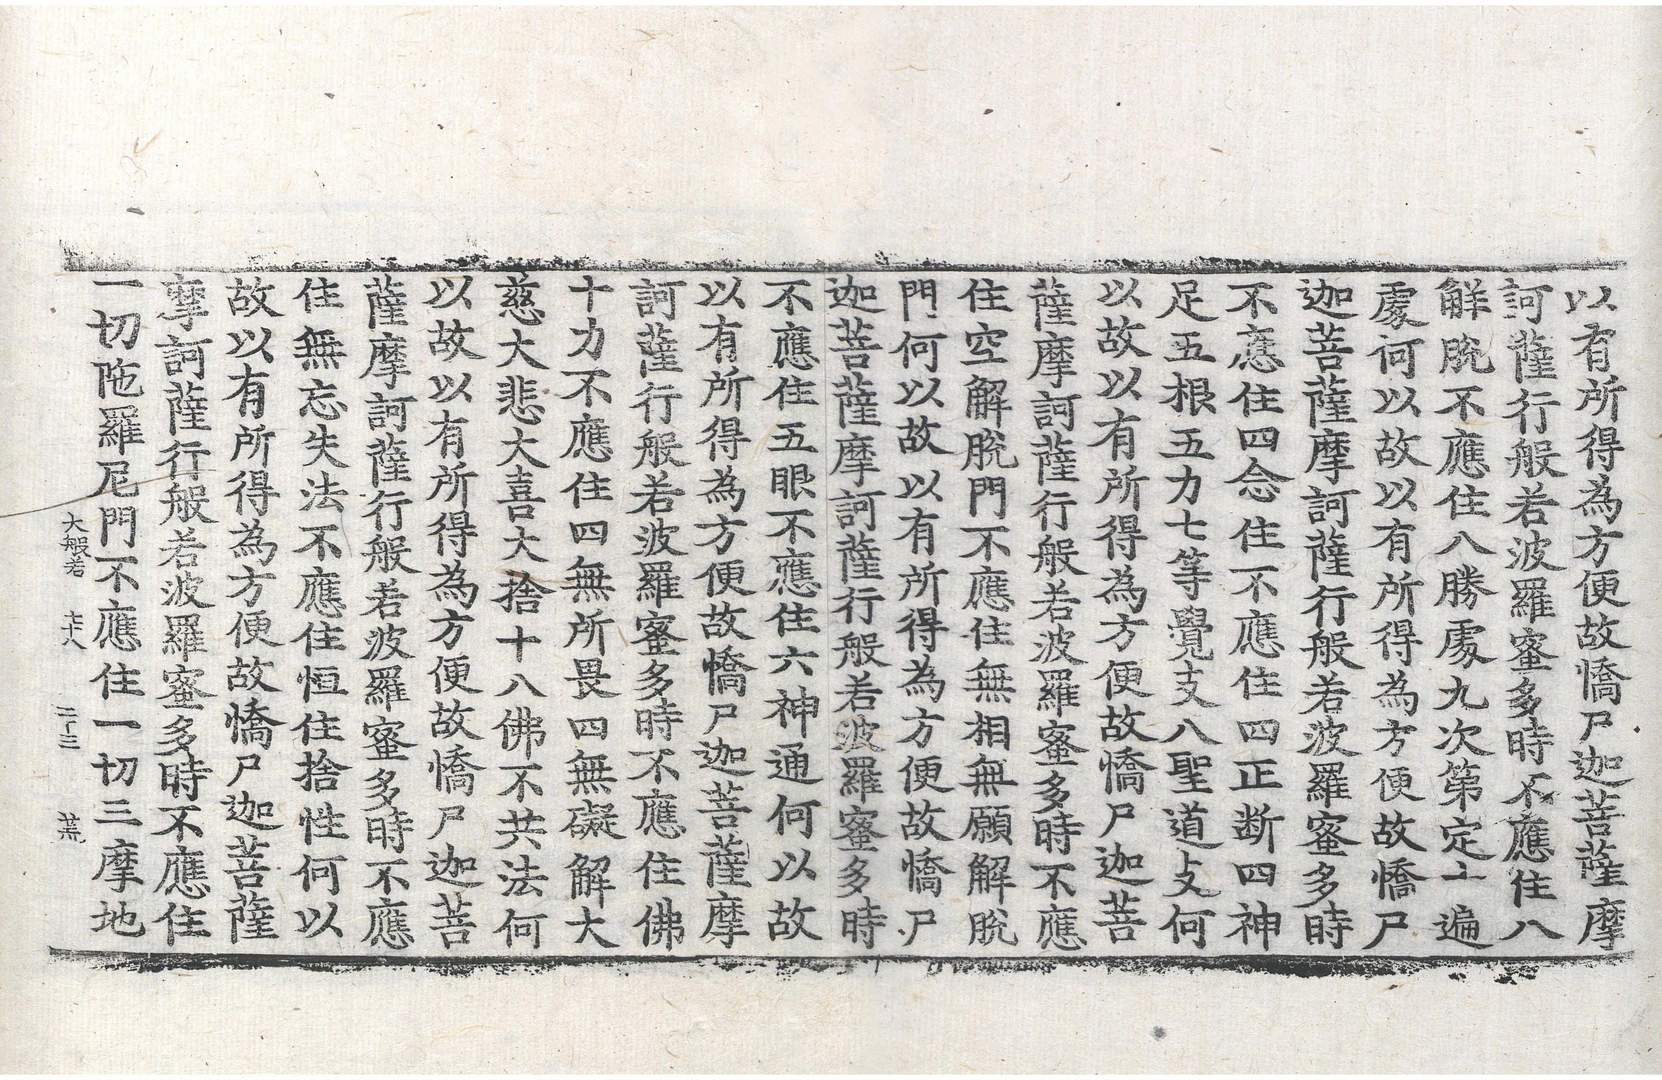 以有所得為方便故憍尸迦菩薩摩
訶薩行般若波羅蜜多時不應住八
解脫不應住八勝處九次第定十遍
處何以故以有所得為方便故憍尸
迦菩薩摩訶薩行般若波羅蜜多時
不應住四念住不應住四正断四神
足五根五力七等覺支八聖道支何
以故以有所得為方便故憍尸迦菩
薩摩訶薩行般若波羅蜜多時不應
住空解脫門不應住無相無願解脫
門何以故以有所得為方便故憍尸
迦菩薩摩訶薩行般若波羅蜜多時
不應住五眼不應住六神通何以故
以有所得為方便故憍尸迦菩薩摩
訶薩行般若波羅蜜多時不應住佛
十力不應住四無所畏四無礙解大
慈大悲大喜大捨十八佛不共法何
以故以有所得為方便故憍尸迦菩
薩摩訶薩行般若波羅蜜多時不應
住無忘失法不應住恒住捨性何以
故以有所得為方便故憍尸迦菩薩
摩訶薩行般若波羅蜜多時不應住
一切陁羅尼門不應住一切三摩地
大般若 七十八 二十三 荒